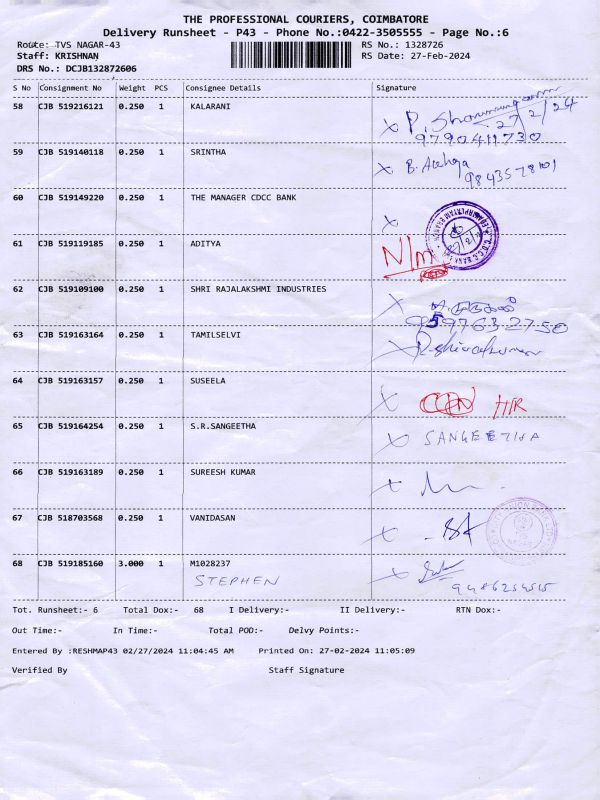 THE PROFESSIONAL COURIERS, COIMBATORE
Delivery Runsheet - P43 - Phone No.:0422-3505555 - Page No.:6
Route: TVS NAGAR-43 RS No.: 1328726
Staff: KRISHNAN RS Date: 27-Feb-2024
DRS No.: DCJB132872606
S No Consignment No Weight PCS Consignee Details Signature
58 CJB 519216121 0.250 1 KALARANI
27/2/24
9790411730
59 CJB 519140118 0.250 1 SRINTHA
9843578101
60 CJB 519149220 0.250 1 THE MANAGER CDCC BANK
61 CJB 519119185 0.250 1 ADITYA N/m
62 CJB 519109100 0.250 1 SHRI RAJALAKSHMI INDUSTRIES
63 CJB 519163164 0.250 1 TAMILSELVI
64 CJB 519163157 0.250 1 SUSEELA
65 CJB 519164254 0.250 1 S.R.SANGEETHA SANGEETHA
66 CJB 519163189 0.250 1 SUREESH KUMAR
67 CJB 518703568 0.250 1 VANIDASAN
68 CJB 519185160 3.000 1 M1028237
STEPHEN
Tot. Runsheet:- 6 Total Dox:- 68 I Delivery:- II Delivery:- RTN Dox:-
Out Time:- In Time:- Total POD:- Delvy Points:-
Entered By :RESHMAP43 02/27/2024 11:04:45 AM Printed On: 27-02-2024 11:05:09
Verified By Staff Signature